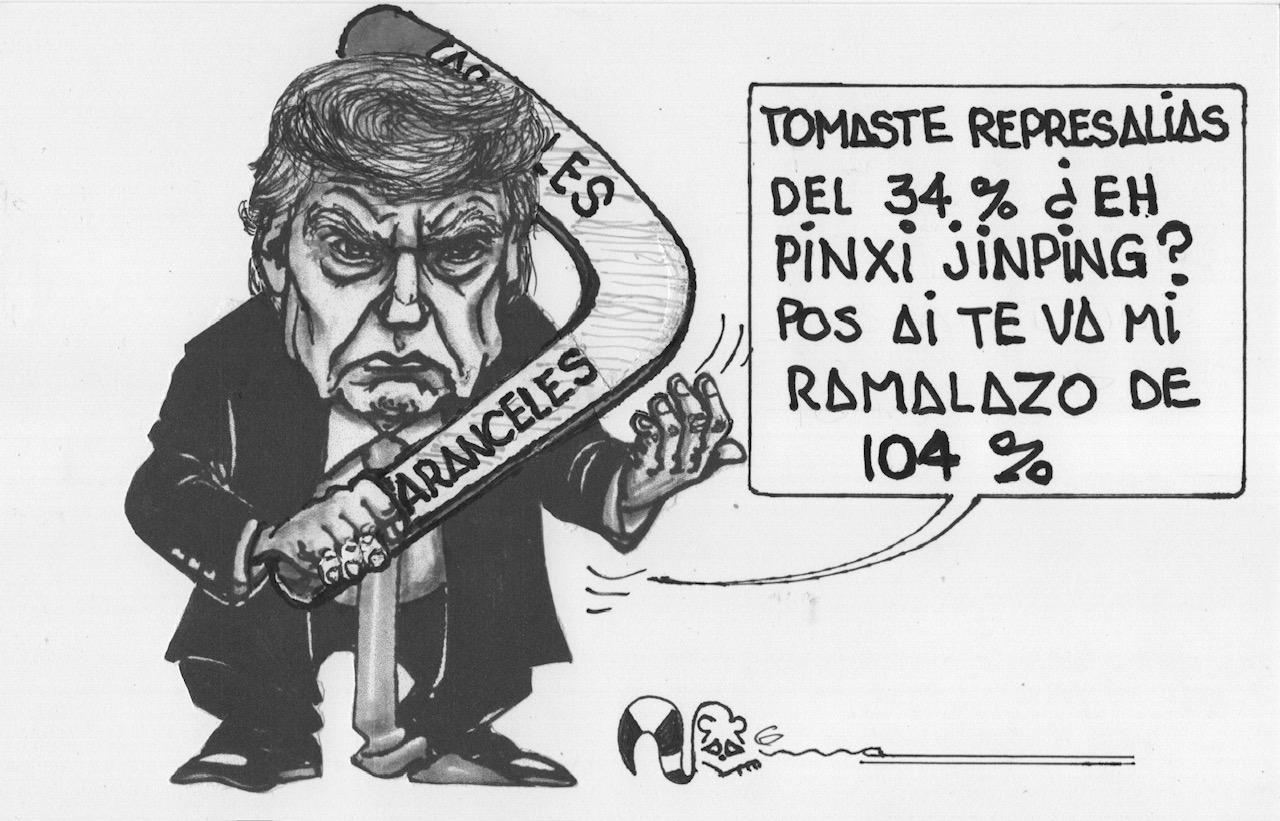 ARANCELES
TOMASTE REPRESALIAS
DEL 34 % ¿EH
PINXI JINPING?
POS AI TE VA MI
RAMALAZO DE
104 %